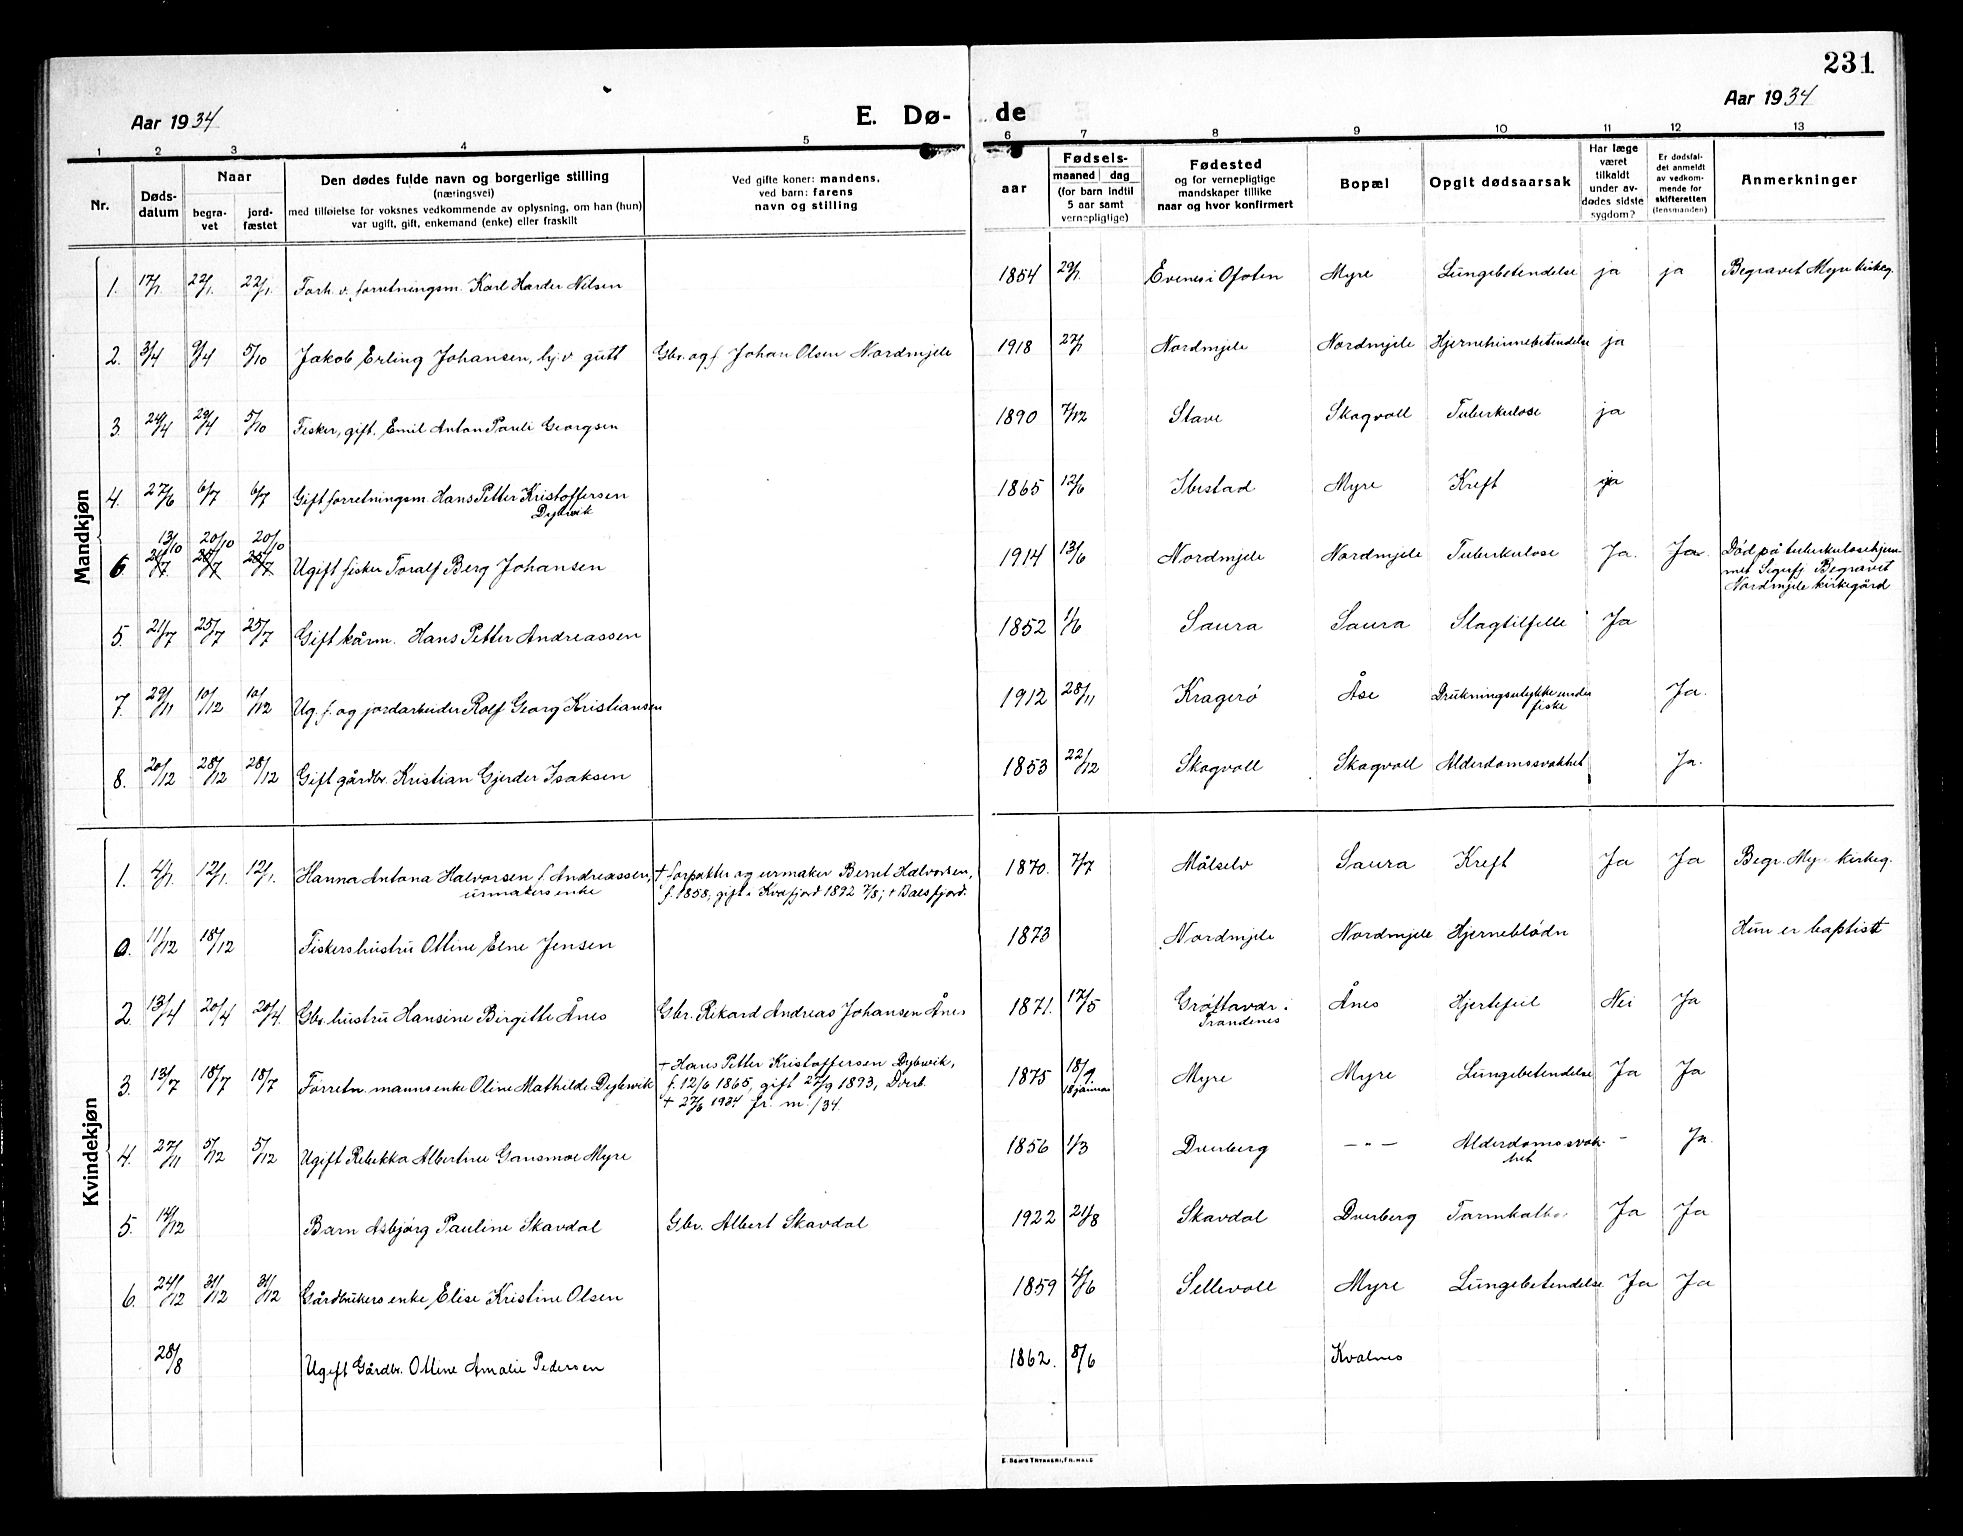 231
Aar 1934 E. Dø- de Aar 1934
1 2 3 4 5 6 7 8 9 10 11 12 13
Nr. Dødsdatum Naar begravet jordfæstet
Den dødes fulde navn og borgerlige stilling
(næringsvei)
med tilføielse for voksnes vedkommende av oplysning, om han (hun)
var ugift, gift, enkemand (enke) eller fraskilt
Ved gifte koner: mandens,
ved barn: farens
navn og stilling
Fødsels-
aar maaned dag
(for barn indtil
5 aar samt
vernepligtige)
Fødested
og for vernepligtige
mandskaper tillike
naar og hvor konfirmert
Bopæl
Opgit dødsaarsak
Har læge
været
tilkaldt
under av-
dødes sidste
sygdom?
Er dødsfal-
det anmeldt
av vedkom-
mende for
skifteretten
(lensmanden)
Anmerkninger
Mandkjøn
1. 17/1 22/1 22/1 Forh. v. forretningsm. Karl Harder Nilsen 1854 29/1 Evenes i Ofoten Myre Lungebetendelse ja ja Begravet Myre kirkeg.
2. 3/4 9/4 5/10 Jakob Erling Johansen, hj.v gutt Gbr. og f. Johan Olsen Nordmjele 1918 27/1 Nordmjele Nordmjele Hjernehinnebetendelse ja
3. 24/4 29/4 5/10 Fisker, gift. Emil Anton Pauli Georgsen 1890 7/12 Stave Skogvoll Tuberkulose ja
4. 27/6 6/7 6/7 Gift forretningsm. Hans Petter Kristoffersen
Dybwik 1865 12/6 Ibestad Myre Kreft ja
13/10 20/10 20/10
6. 21/7 25/7 25/7 Ugift fisker Toralf Berg Johansen 1914 13/6 Nordmjele Nordmjele Tuberkulose Ja. Ja. Død på tuberkulosehjem-
met Begravet
Nordmjele kirkegård
5. 21/7 25/7 25/7 Gift kårm. Hans Petter Andreassen 1852 1/6 Saura Saura Slagtilfelle Ja
7. 29/11 10/12 10/12 Ug. f. og jordarbeider Rolf Georg Kristiansen 1912 28/11 Kragerö Åse Drukningsulykke under
fiske Ja.
8. 20/12 28/12 28/12 Gift gårdbr. Kristian Gjerder Isaksen 1853 22/12 Skogvoll Skogvoll Alderdomssvakhet Ja.
Kvindekjøn
1. 4/1 12/1. 12/1. Hanna Antona Halvorsen f. Andreassen,
urmakers enke † forpakter og urmaker Bernt Halvorsen,
f. 1858; gift i Kvæfjord 1892 7/8; † Balsfjord. 1870. 7/7 Målselv Saura Kreft Ja Ja Begr. Myre kirkeg.
0. 11/12 18/12 Fiskershustru Olline Elne Jensen 1873 Nordmjele Nordmjele Hjerneblödn Hun er baptist
2. 13/4 20/4 20/4. Gbr. hustru Hansine Birgitte Ånes Gbr. Rikard Andreas Johansen Ånes 1871. 17/5 Grøttavær i
Trondenes Ånes Hjertefeil Nei Ja
3. 13/7 18/7 18/7 Forretn. mannsenke Oline Mathilde Dybwik † Hans Petter Kristoffersen Dybwik,
f. 12/6 1865, gift 27/9 1893, Dverb.
† 27/6 1934 fr. m. /34. 1875 18/9.
18 januar Myre Myre Lungebetendelse Ja Ja
4. 27/11 5/12 5/12 Ugift Rebekka Albertine Gansmoe Myre 1856 1/3 Dverberg – " – Alderdomssvak-
het – Ja.
5. 14/12 Barn Asbjörg Pauline Skavdal Gbr. Albert Skavdal 1922 21/8 Skavdal Dverberg Ja Ja
6. 24/12 31/12 31/12 Gårdbrukers enke Elise Kristine Olsen 1859 4/6 Sellevoll Myre Lungebetendelse Ja Ja
28/8 Ugift Gårdbr. Olline Amalie Pedersen 1862. 8/6 Kvalnes
E. SEM'S TRYKKERI, FR.HALD